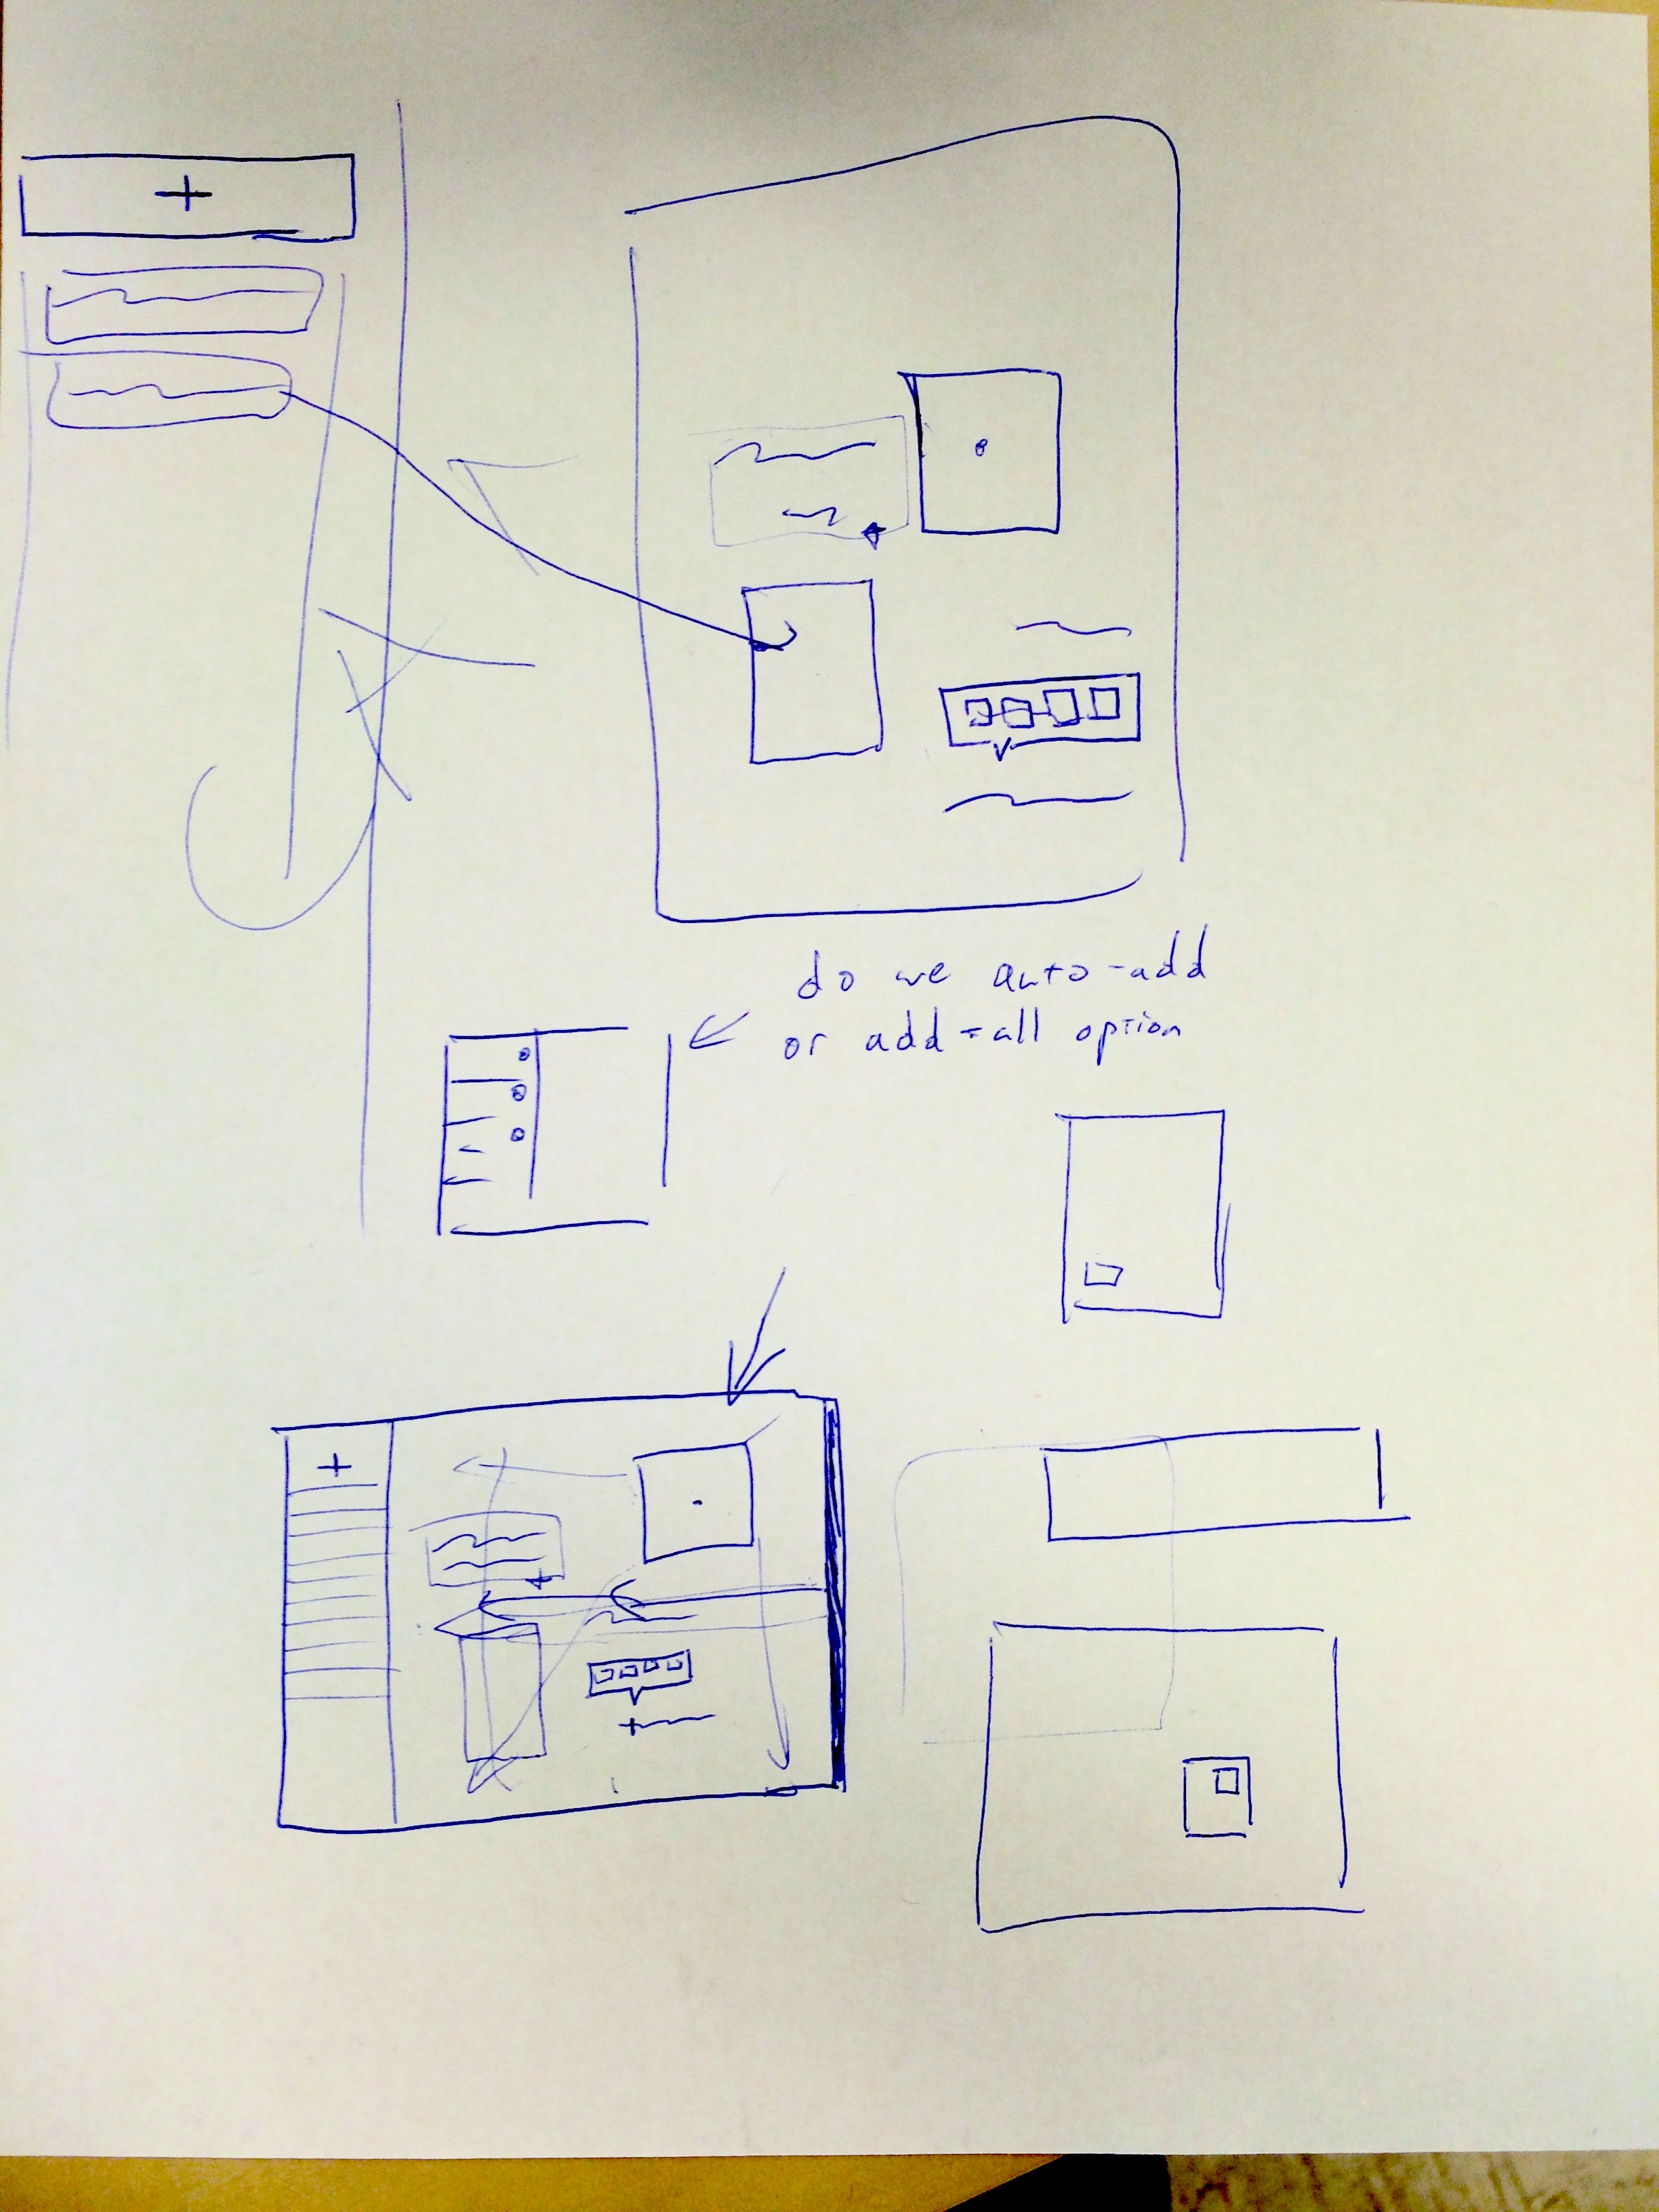 +
do we auto-add
or add-all option
+